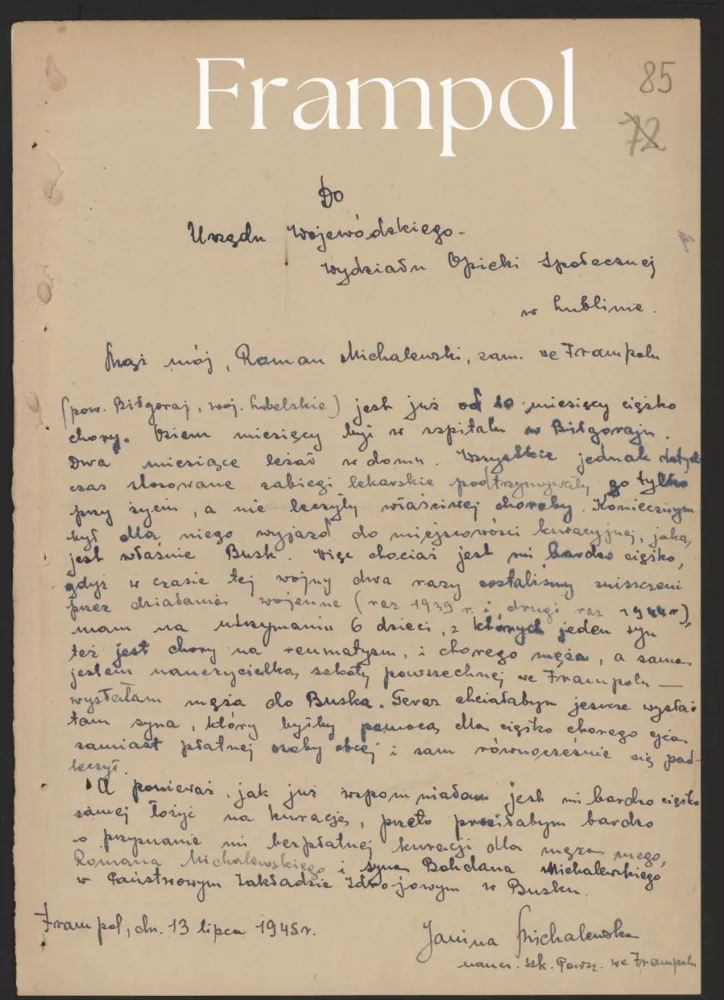 Frampol
85
72
Do
Urzędu Wojewódzkiego -
Wydziału Opieki Społecznej
w Lublinie.
Mąż mój, Roman Michalewski, zam. we Frampolu
(pow. Biłgoraj, woj. lubelskie) jest już od 10 miesięcy ciężko
chory. Osiem miesięcy był w szpitalu w Biłgoraju.
Dwa miesiące leżał w domu. Wszystkie jednak dotych
czas stosowane zabiegi lekarskie podtrzymywały go tylko
przy życiu, a nie leczyły właściwej choroby. Koniecznym
był dla niego wyjazd do miejscowości kuracyjnej, jaką
jest właśnie Busk. Więc chociaż jest mi bardzo ciężko,
gdyż w czasie tej wojny dwa razy zostaliśmy zniszczeni
przez działania wojenne (raz 1939 r. i drugi raz 1944 r),
mam na utrzymaniu 6 dzieci, z których jeden syn
też jest chory na reumatyzm, i chorego męża, a sama
jestem nauczycielką szkoły powszechnej we Frampolu —
wysłałam męża do Buska. Teraz chciałabym jeszcze wysłać
tam syna, który byłby pomocą dla ciężko chorego ojca
zamiast płatnej osoby obcej i sam równocześnie się pod-
leczył.
A ponieważ, jak już wspomniałam jest mi bardzo ciężko
samej łożyć na kurację, przeto prosiłabym bardzo
o przyznanie mi bezpłatnej kuracji dla męża mego,
Romana Michalewskiego i syna Bohdana Michalewskiego
w Państwowym Zakładzie Zdrojowym w Busku.
Frampol, dn. 13 lipca 1945 r.
Janina Michalewska
naucz. szk. Powsz. we Frampolu